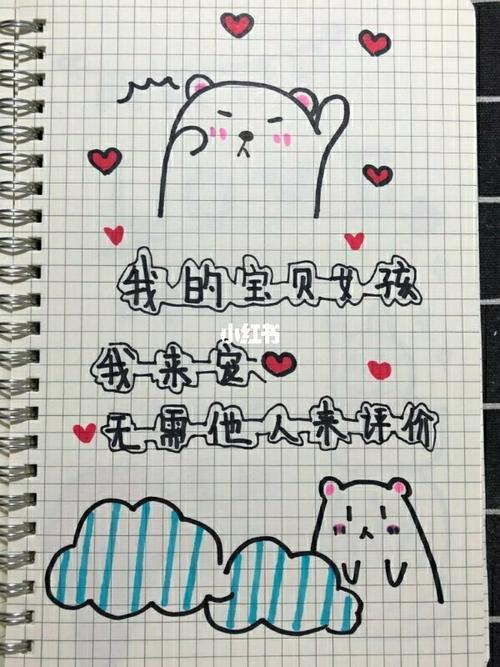 我的宝贝女孩
小红书
我来宠
无需他人来评价